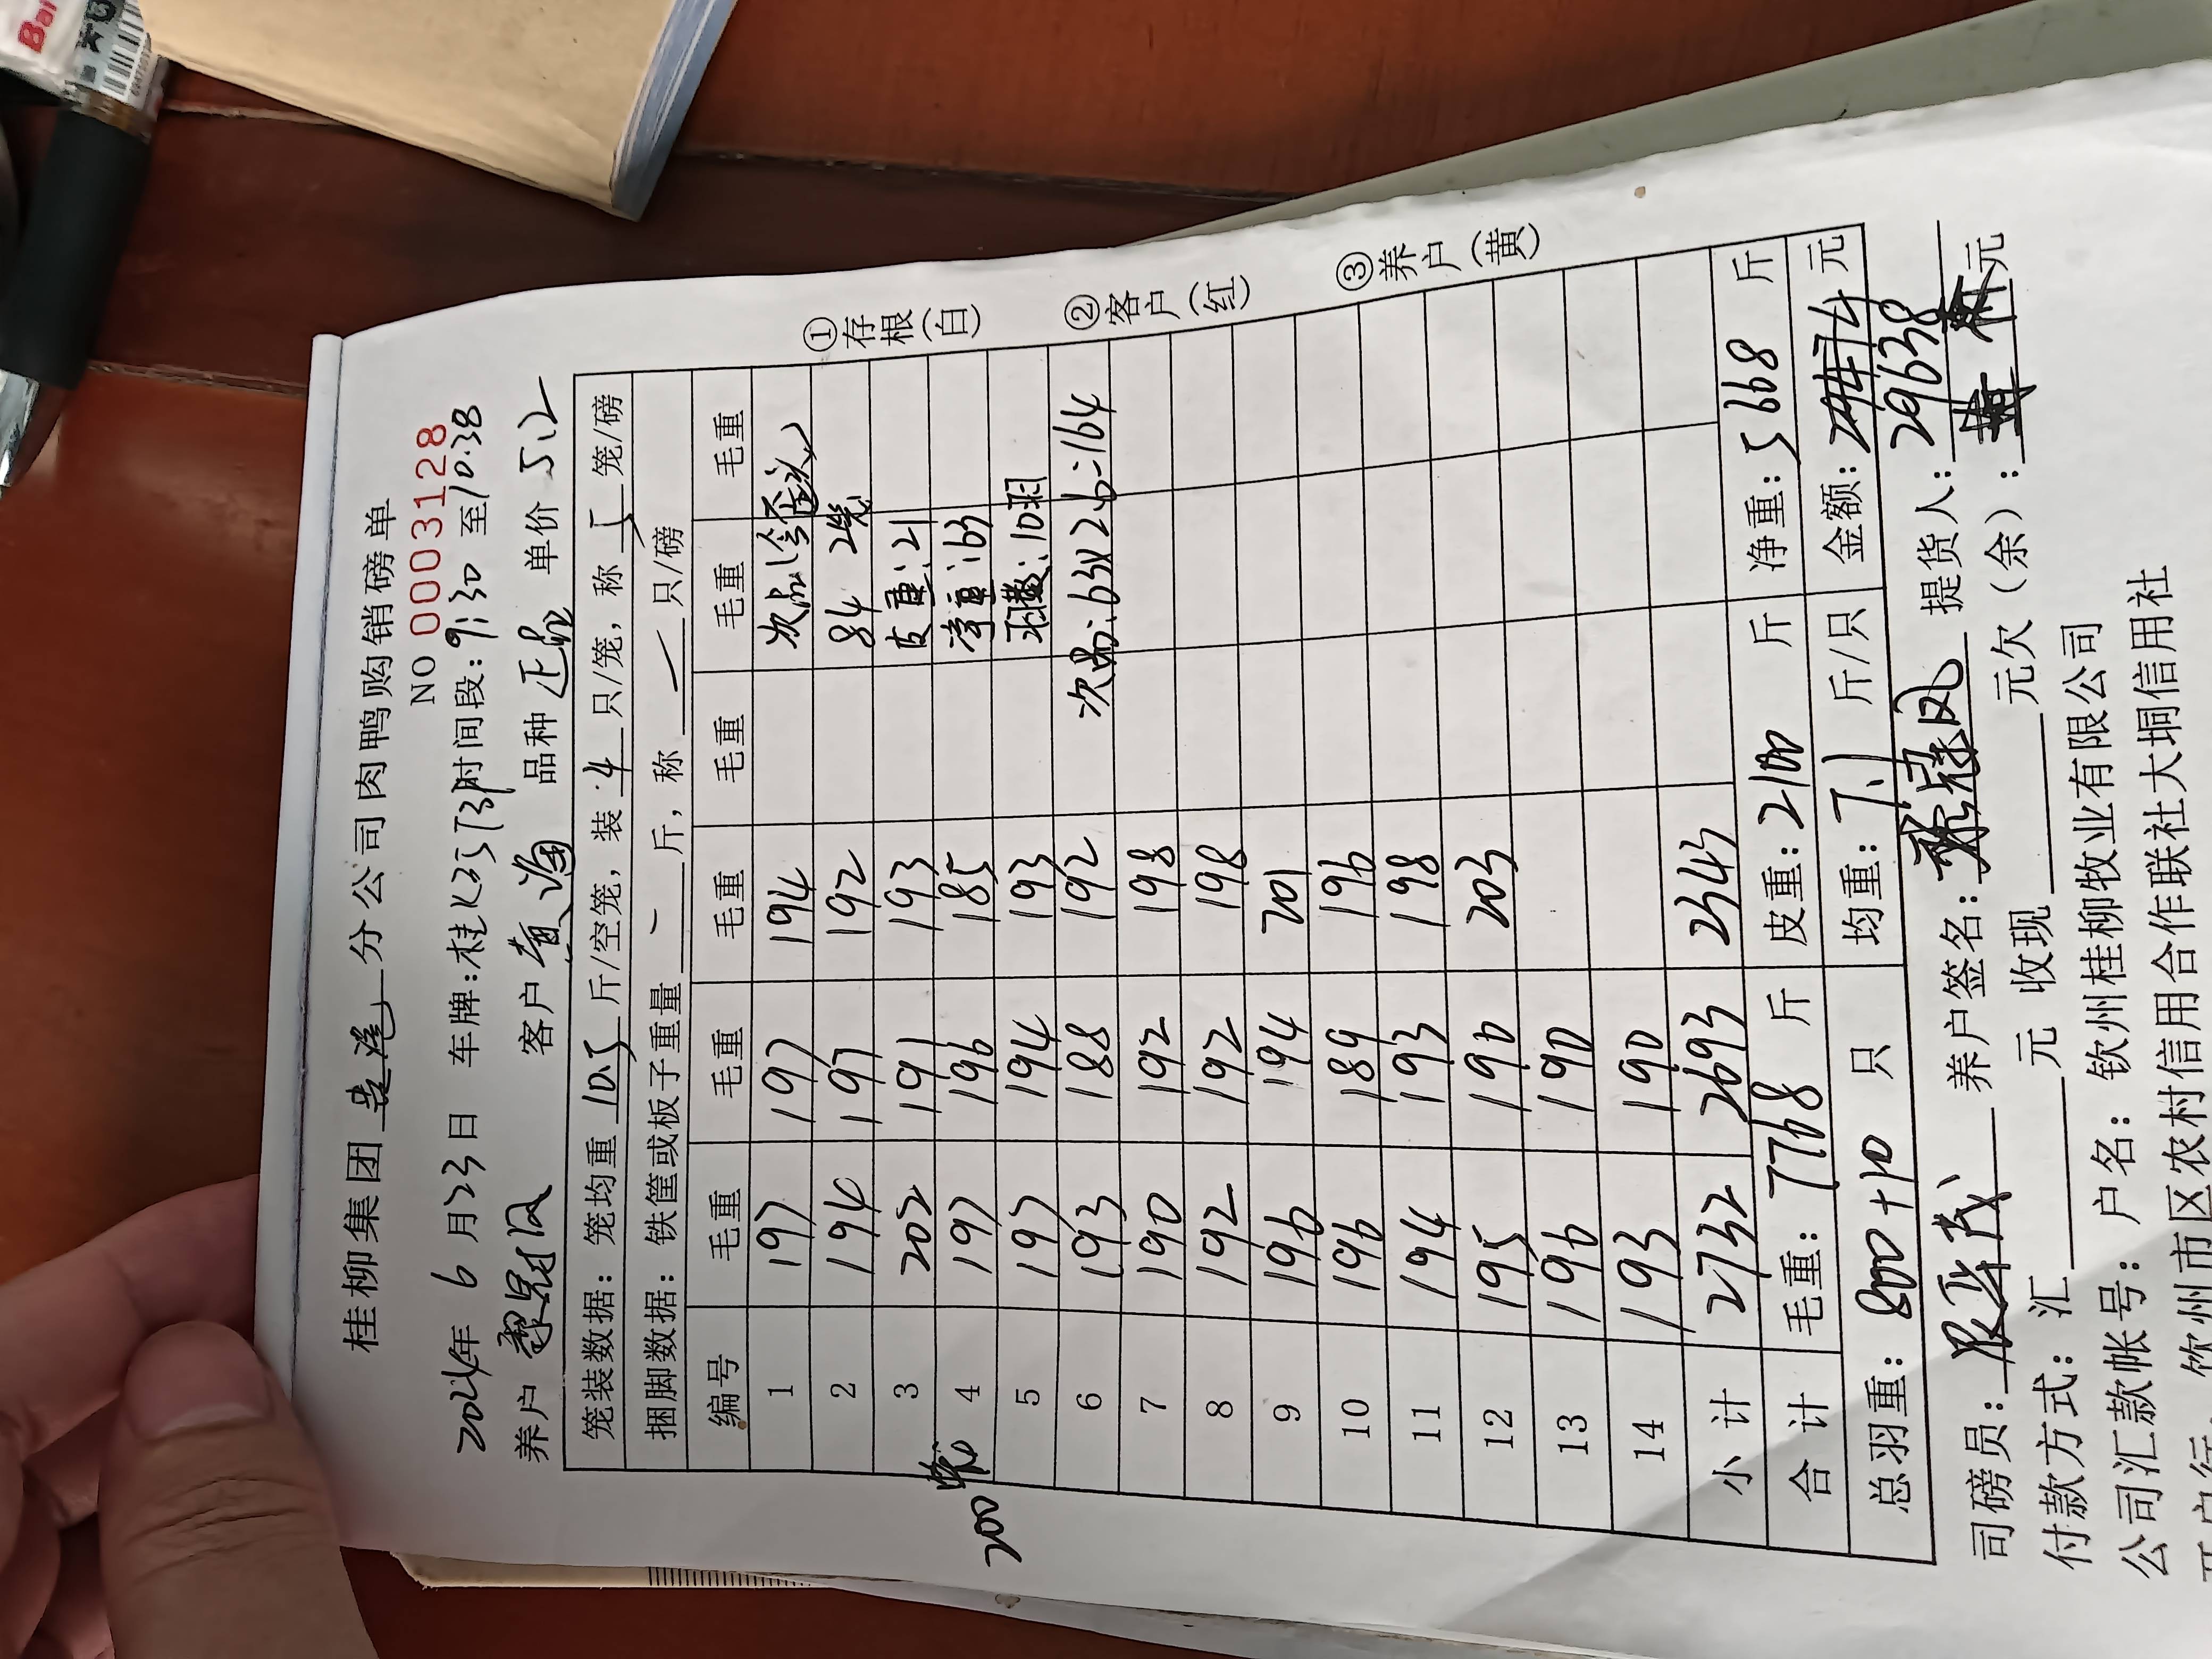 桂柳集团 分公司肉鸭购销磅单
NO 0003128
2024年 6 月 23 日 车牌:桂K 时间段:9:30 至 10:38
养户 客户 黄海 品种 正品 单价 5.2
笼装数据: 笼均重 10.5 斤/空笼, 装 4 只/笼, 称 5 笼/磅
捆脚数据: 铁筐或板子重量 — 斤, 称 — 只/磅
编号 毛重 毛重 毛重 毛重 毛重 毛重
1 197 197 194 次品
2 194 197 192 84 2笼
3 202 191 193 皮重:21
200笼
4 197 196 185 净重:63
5 197 194 193 羽数:10羽
6 193 188 192 次品:63×2.6=164
7 190 192 198
8 192 192 198
9 196 194 201
10 196 189 196
11 194 193 198
12 195 196 203
13 196 190
14 193 190
小计 2732 2693 2343
合计 毛重: 7768 斤 皮重: 2100 斤 净重: 5668 斤
总羽重: 800+10 只 均重: 7.1 斤/只 金额: 29474 元
29638
司磅员: 养户签名: 提货人:
付款方式: 汇 元 收现 元欠(余): 元
公司汇款帐号: 户名: 钦州桂柳牧业有限公司
开户行: 钦州市区农村信用合作联社大垌信用社
①存根(白)
②客户(红)
③养户(黄)